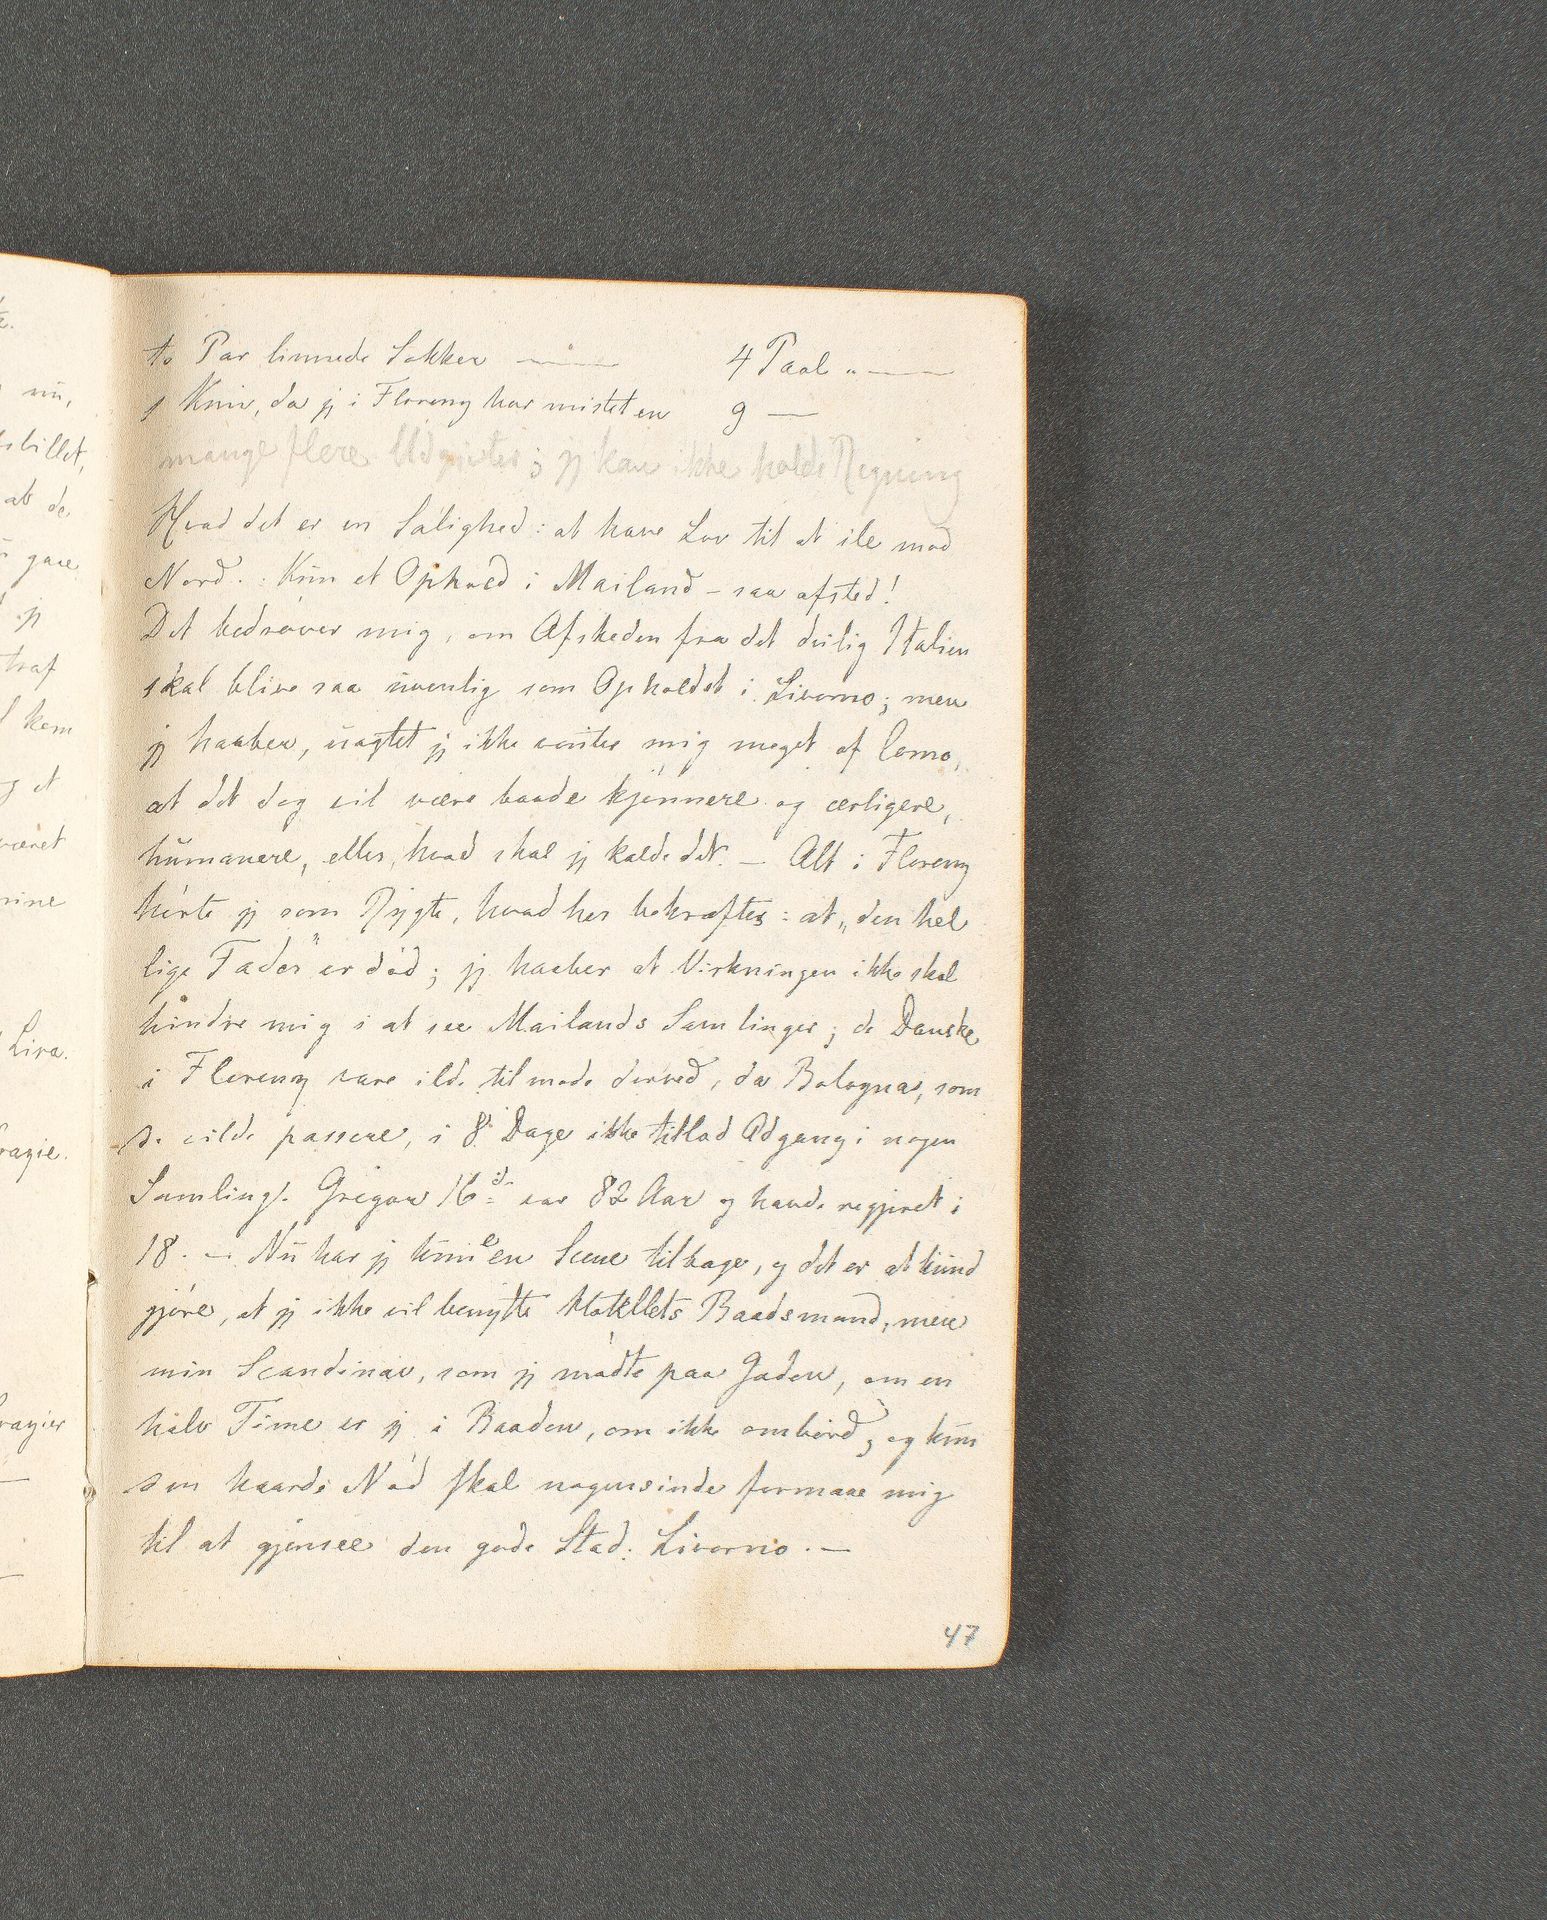 to Par linnede Sokker —— 4 Paol „ ——
1 Kniv, da jeg i Florenz har mistet en 9 —
mange flere Udgivter; jeg kan ikke holde Regning
Hvad det er en Salighed: at have Lov til at ile mod
Nord. : Kun et Ophold i Mailand – saa afsted!
Det bedrøver mig, om Afskeden fra det deilig Italien
skal blive saa uvenlig som Opholdet i Livorno; men
jeg haaber, uagtet jeg ikke venter mig meget af Como,
at det dog vil være baade kjønnere og ærligere,
humanere, eller, hvad skal jeg kalde det. — Alt i Florenz
hørte jeg som Rygte, hvad her bekræftes: at „den hel
lige Fader" er død; jeg haaber at Virkningen ikke skal
hindre mig i at see Mailands Samlinger; de Danske
i Florenz vare ilde tilmode derved, da Bologna, som
de vilde passere, i 8 Dage ikke tillod Adgang i nogen
Samling. Gregor 16de var 82 Aar og havde regjeret i
18. — Nu har jeg kun een Scene tilbage, og det er at kund
gjøre, at jeg ikke vil benytte Hotellets Baadsmand, men
min Scandinav, som jeg mødte paa Gaden, om en
halv Time er jeg i Baaden, om ikke ombord; og kun
den haarde Nød skal nogensinde formaae mig
til at gjensee den gode Stad: Livorno. —
47
nu,
billet,
at de
gaae
jeg
traf
kom
og et
været
mine
Lira.